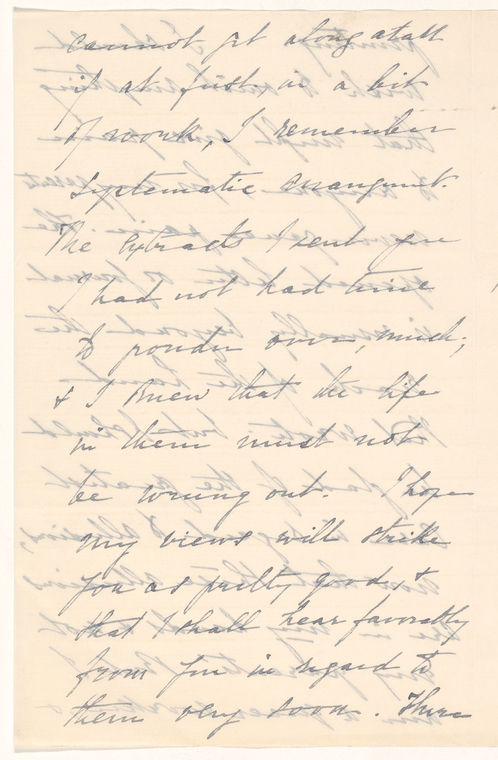 cannot get along atall
if at first in a bit
of work, I remember
systematic arrangment.
The extracts I sent you
I had not had time
to ponder over, much;
& I knew that the life
in them must not
be wrung out. I hope
my views will strike
you as pretty good, &
that I shall hear favorably
from you in regard to
them very soon. There